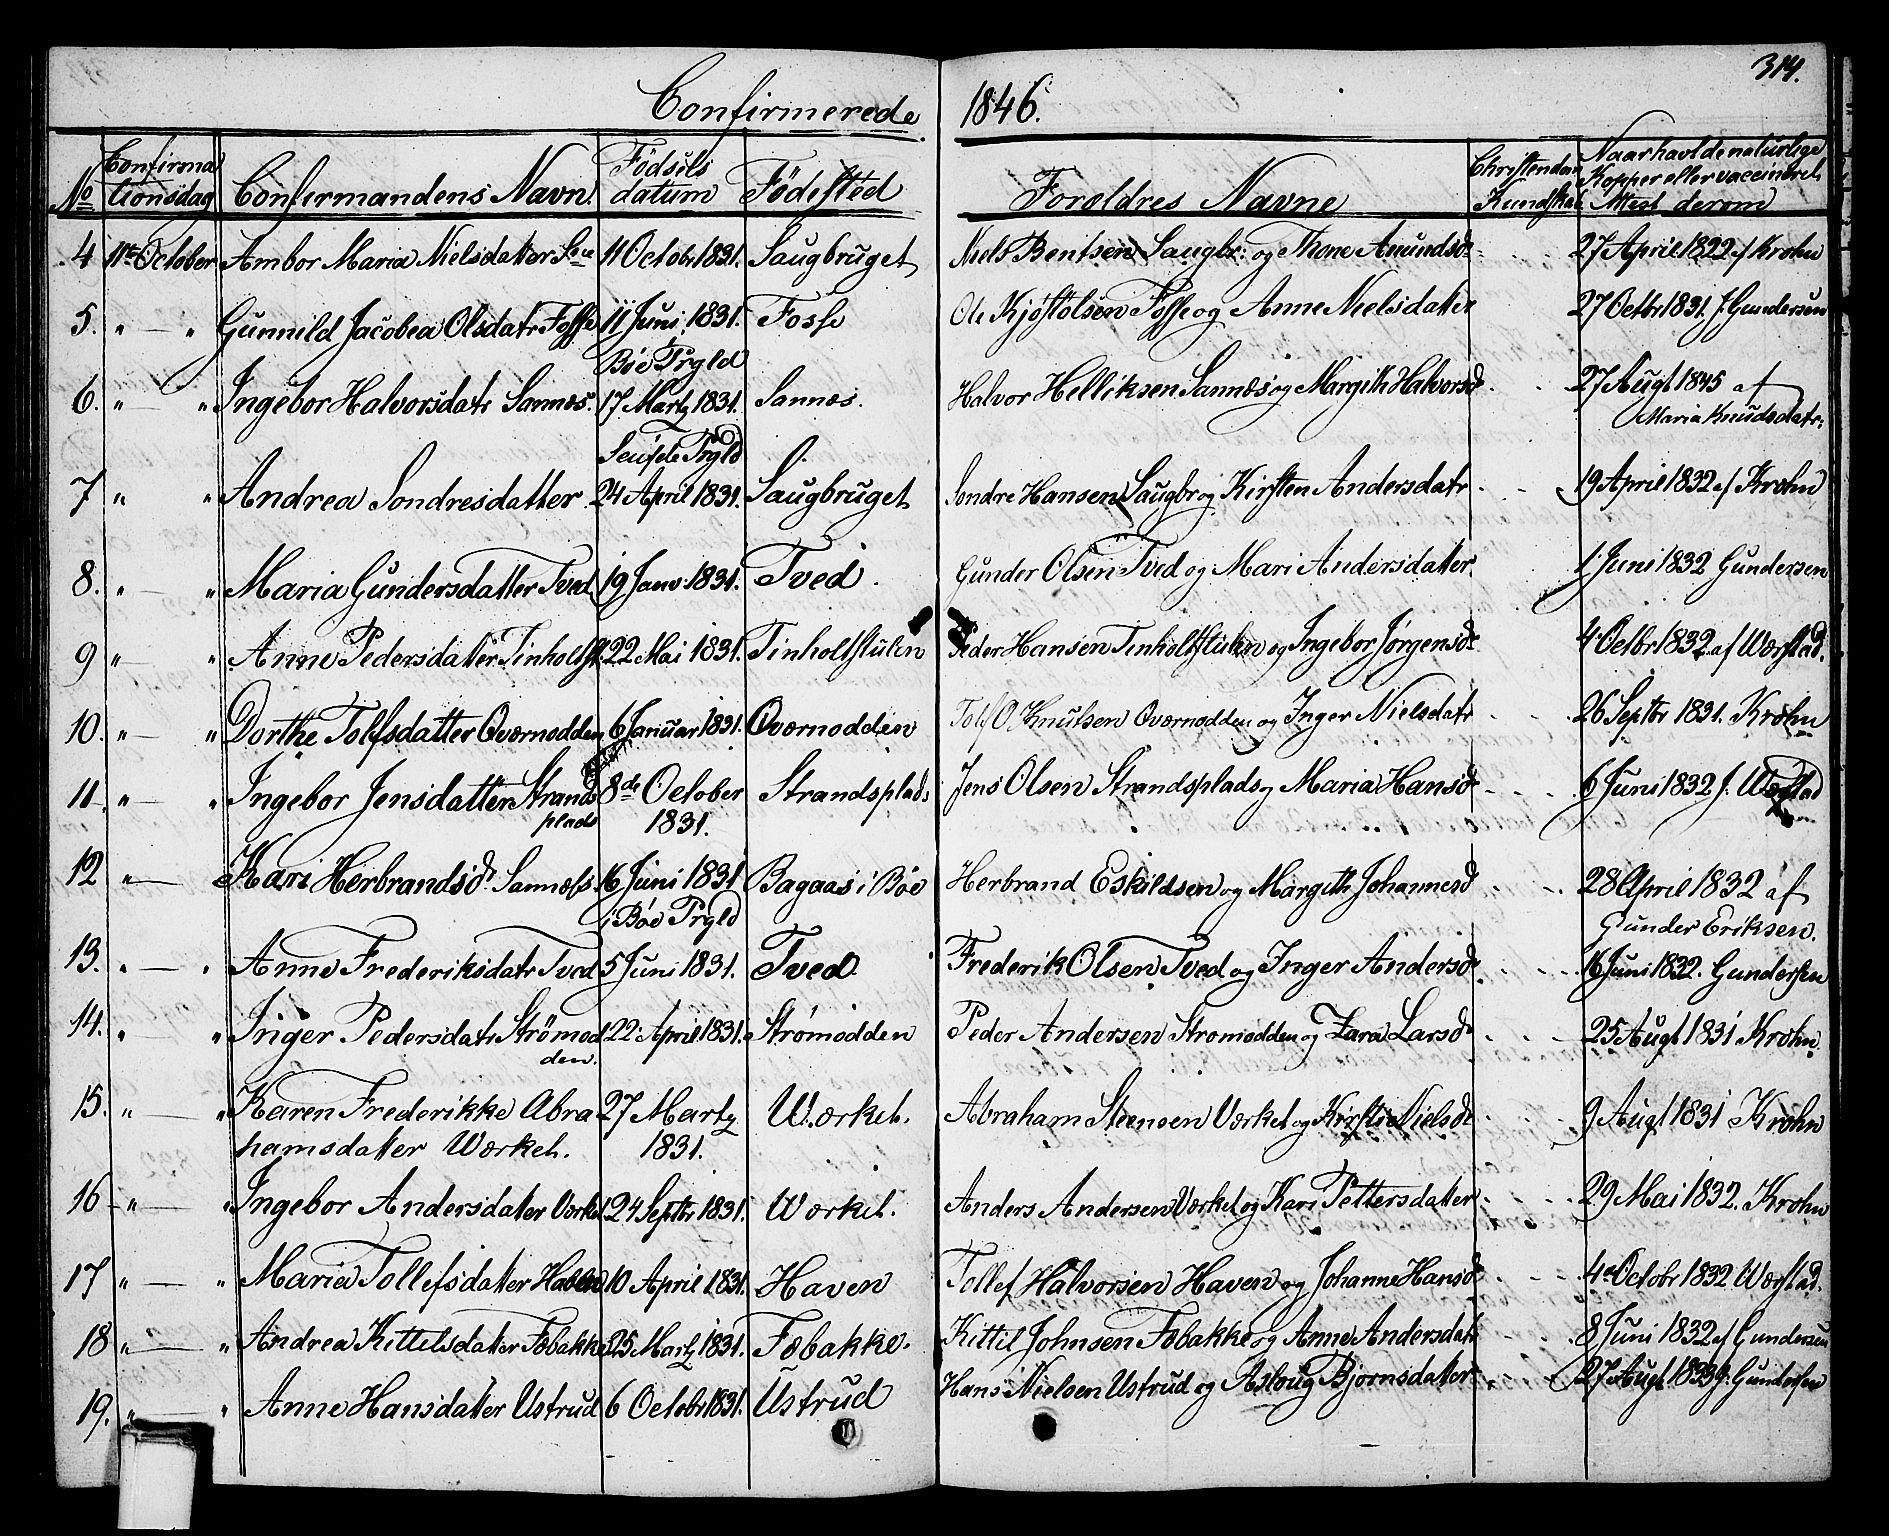 314.
Confirmerede 1846.
No Confirmationsdag Confirmandens Navn. Födsels datum Födested Foroldres Navne Christendoms Kundskab Naar havt de naturlige Kopper eller vaccineret Attest derom
4 11te October Ambor Maria Nielsdatter 11 Octobr 1831. Saugbruget Niels Bentsen Saugbr: og Thone Amundsd 27 April 1822 af Krohn
5. " — " Gunnild Jacobea Olsdatr Fosse 11 Juni 1831. Fosse Ole Kjøstolsen Fosse og Anne Nielsdatter 27 Octbr 1831 f. Gundersen
Bøe Prgld
6. " — " Ingebor Halvorsdatr Sannæs. 17 Martz 1831. Sannæs. Halvor Helliksen Sannæs og Margith Halvorsd. 27 Augt 1845 af
Maria Knudsdatr:
Seufde Prgld
7 " " Andrea Sondresdatter. 24 April 1831. Saugbruget Sondre Hansen Saugbr og Kirsten Andersdatr 19 April 1832 af Krohn
8. " — " Maria Gundersdatter Tved 19 Janv. 1831. Tved. Gunder Olsen Tved og Mari Andersdatter 1 Juni 1832 Gundersen
9 " — " Anne Pedersdatter Tinholtst 22 Mai 1831. Tinholtstulen Peder Hansen Tinholtstulen og Ingebor Jørgensd 4 Octbr 1832 af Wærstad.
10. " — " Dorthe Tolfsdatter Oværnodden 6 Januar 1831. Oværnodden Tolf O Knutsen Oværnodden og Inger Nielsdatr 26 Septbr 1831. Krohn
11. " — " Ingebor Jensdatter Strands 8de October Strandsplads Jens Olsen Strandsplads og Maria Hansd 6 Juni 1832 f. Wærstad
plads 1831.
12 " — Kari Herbrandsd. Sannæs. 16 Juni 1831 Bagaas i Böe Herbrand Eskildsen og Margith Johannesd 28 April 1832 af
i Bøe Prgld Gunder Eriksen.
13. " — " Anne Frederiksdatr Tved 5 Juni 1831. Tved. Frederik Olsen Tved og Inger Andersd. 16 Juni 1832. Gundersen
14. " — " Inger Pedersdatr Strömod 22 April 1831. Strømodden Peder Andersen Stromodden og Zara Larsd 25 Augt 1831 Krohn
den.
15. " — " Karen Frederikke Abra 27 Martz Wærket. Abraham Steensen Værket og Kirsti Nielsd 9 Augt 1831 Krohn
hamsdatter Wærket. 1831.
16 " — " Ingebor Andersdatter Værket 24 Septbr 1831. Wærket. Anders Andersen Værket og Kari Pettersdatter 29 Mai 1832. Krohn
17 " — " Maria Tollefsdatter Haven 10 April 1831. Haven Tollef Halvorsen Haven og Johanne Hansd 4de Octobr 1832 Wærstad.
18 " — " Andrea Kittelsdatter Fæbakke 25 Martz 1831. Fæbakke. Kittil Johnsen Fæbakke og Anne Andersdatr 8 Juni 1832 af Gundersen
19. " — " Anne Hansdatter Ustrud 6 Octobr 1831. Ustrud Hans Nielsen Ustrud og Aslaug Bjornsdatter 27 Augt Gundersen